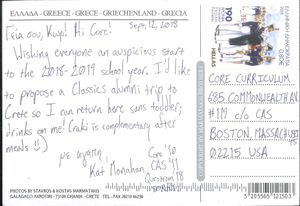 ΕΛΛΑΔΑ - GREECE - GRECE - GRIECHENLAND - GRECIA
Sept. 12, 2018
Γεια σου, Κυρ! Hi Core!
Wishing everyone an auspicious start
to the 2018-2019 school year. I'd like
to propose a Classics alumni trip to
Crete so I can return here sans toddler;
drinks on me! (raki is complimentary after
meals!!)
με αγάπη,
Kat Monahan
Core '10
CAS '11
PHOTOS BY STAVROS & KOSTAS MARMATAKIS
GALAGADO AKROTIRI - 73100 CHANIA - CRETE
HELLAS
CORE CURRICULUM
685 COMMONWEALTH AV
#119 c/o CAS
BOSTON, MASSACHUSETTS
02215 USA
5 205565 121503